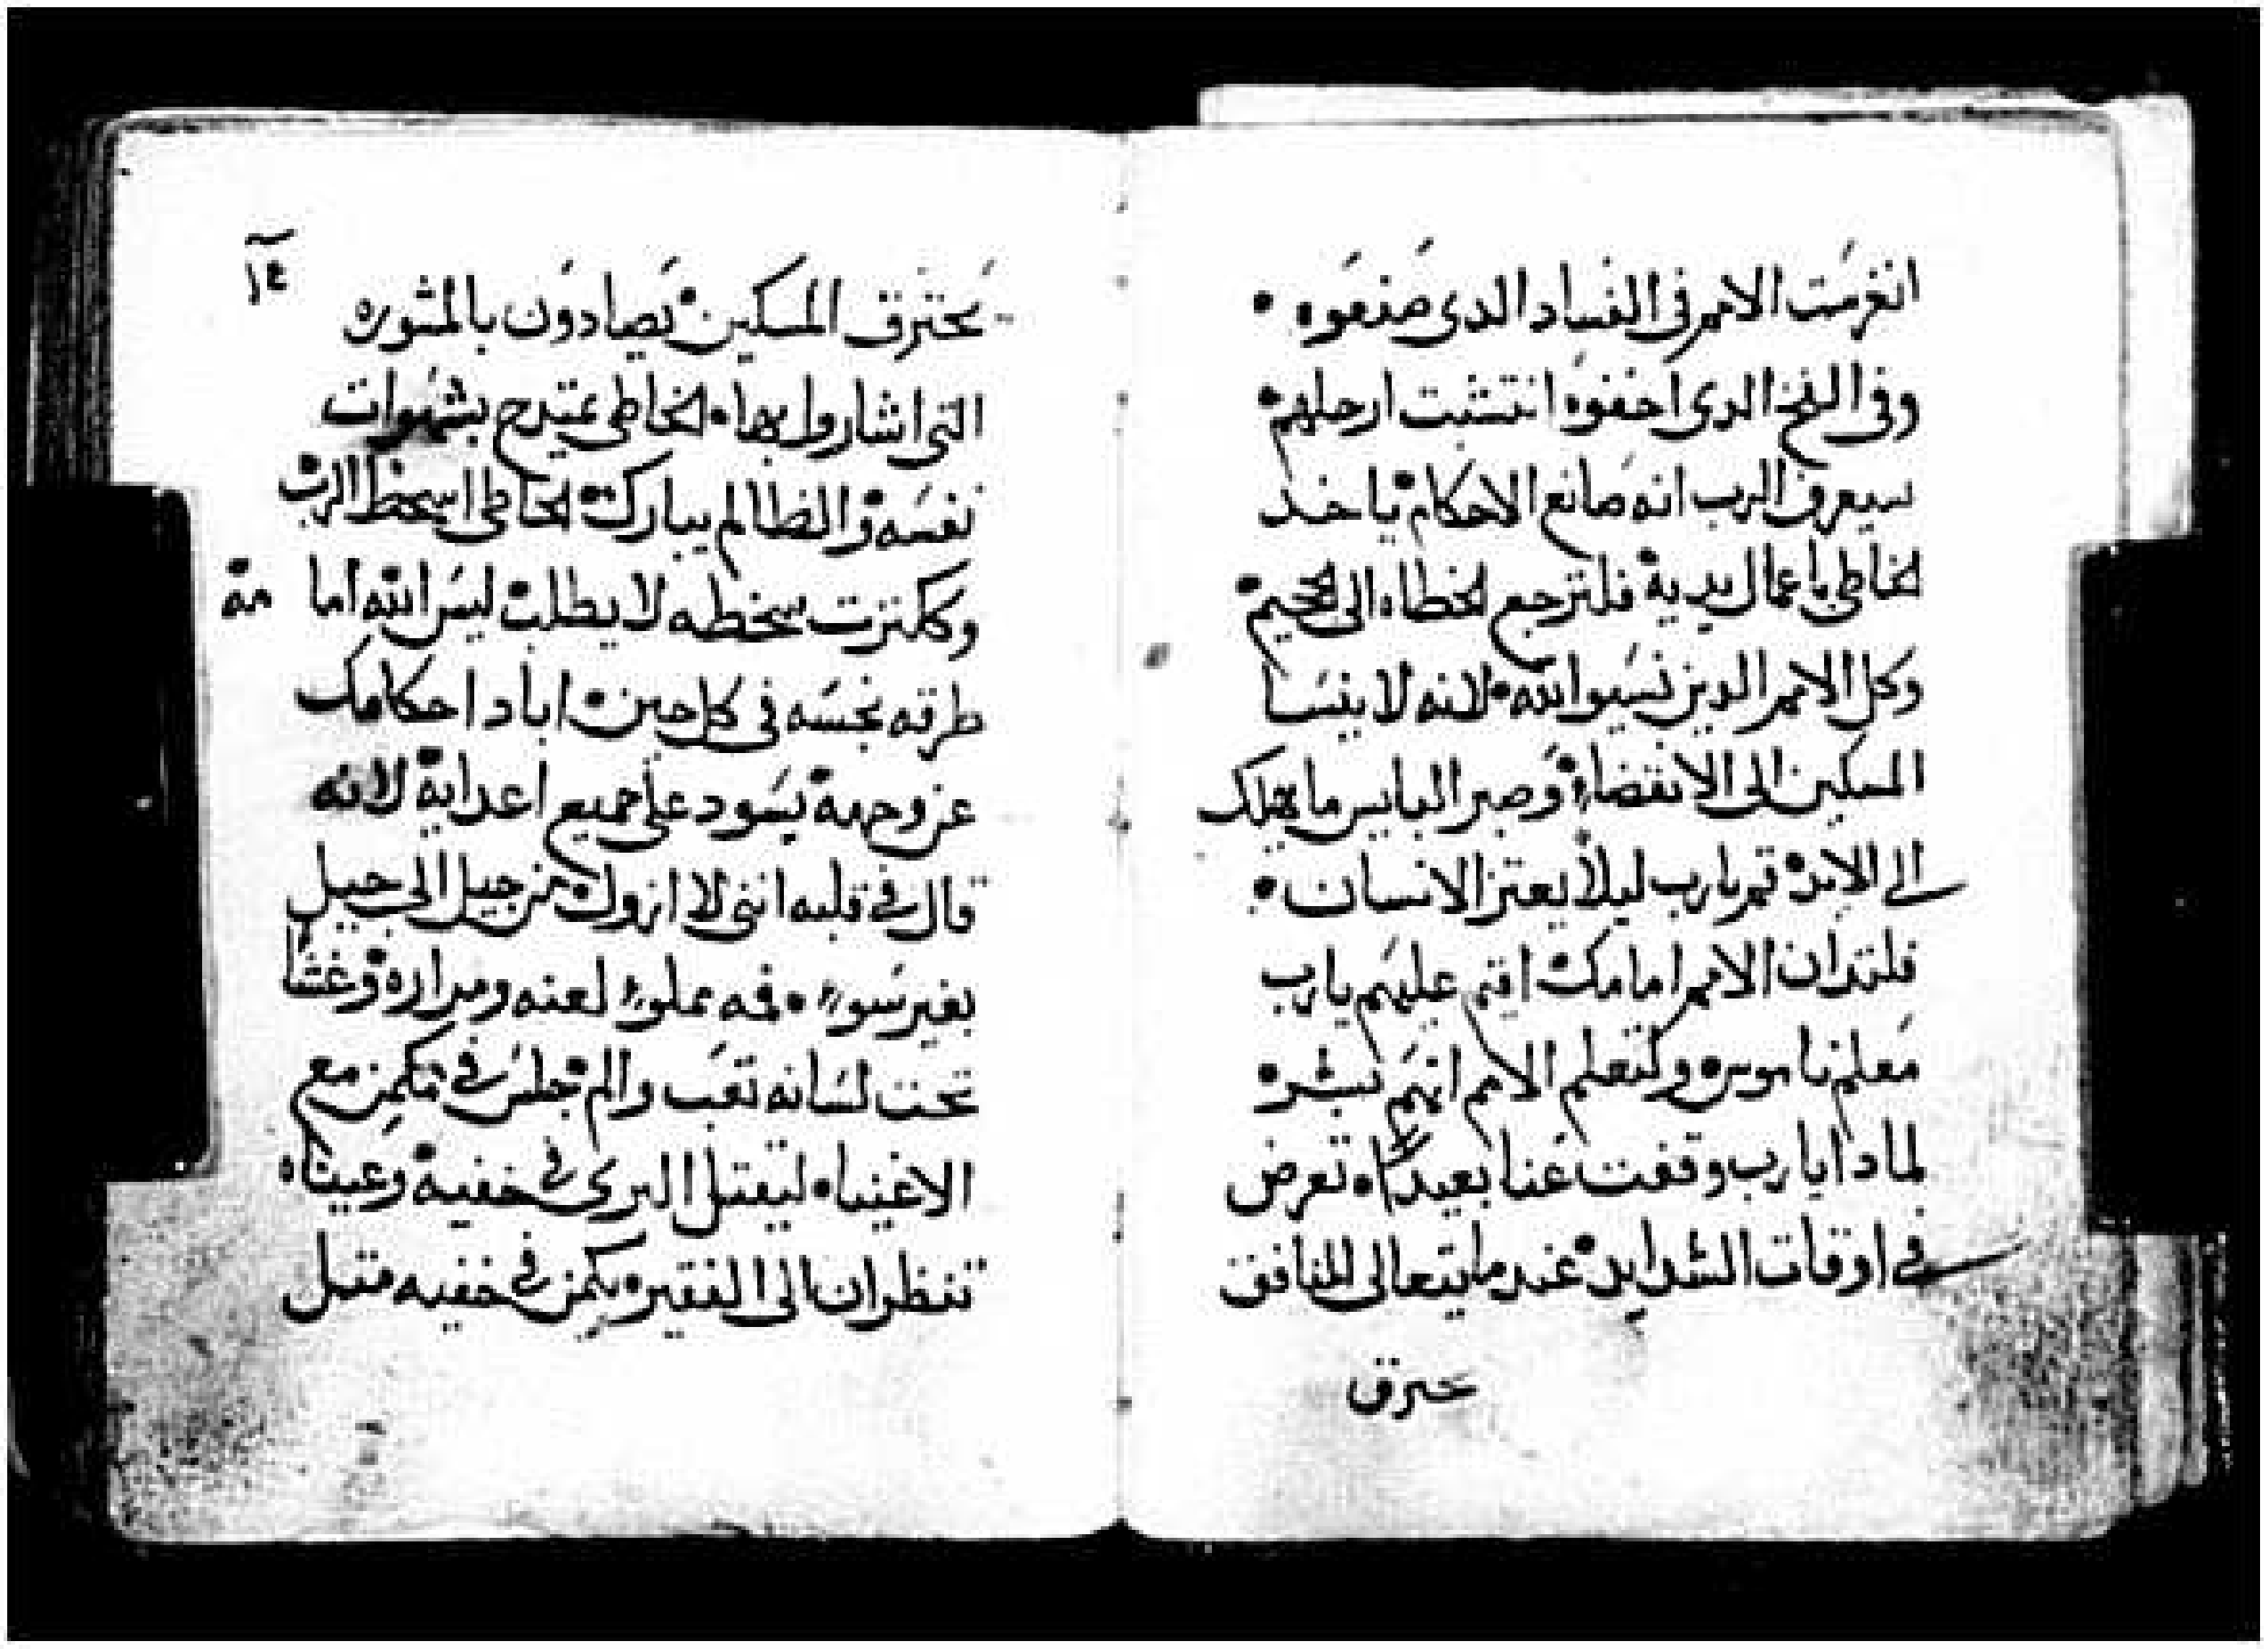 انغرست الامم فى الفساد الدى صنعوه •
وفى الفخ الدى اخفوه انتشبت ارجلهم •
سيعرف الرب انه صانع الاحكام • ياخد
الخاطى باعمال يديه • فلترجع الخطاه الى الجحيم •
وكل الامم الدين نسيوا الله • لانه لا ينسا
المسكين الى الانقضاء • وصبر البايس ما يهلك
الى الابد • قم يارب ليلا يعتز الانسان •
فلتدان الامم امامك • اقم عليهم يارب
معلم ناموس • ولتعلم الامم انهم بشر •
لمادا يارب وقفت عنا بعيدا • تعرض
فى اوقات الشدايد • عند ما يتعالى المنافق
يحترق
١٤
يحترق المسكين • يصادون بالمشوره
التى اشاروا بها • الخاطى يمتدح بشهوات
نفسه • والظالم يبارك • الخاطى اسخط الرب
وككترت سخطه لا يطلب • ليس الله امامه
طرقه نجسه فى كل حين • اباد احكامك
عن وجهه • يسود على جميع اعدايه • لانه
قال فى قلبه اننى لا ازول • من جيل الى جيل
بغير سوء • فمه مملوء لعنه ومراره • وغشا
تحت لسانه تعب والم • جلس فى مكمن مع
الاغنيا • ليقتل البرى فى خفيه • وعيناه
تنظران الى الفقير • يكمن فى خفيه متل